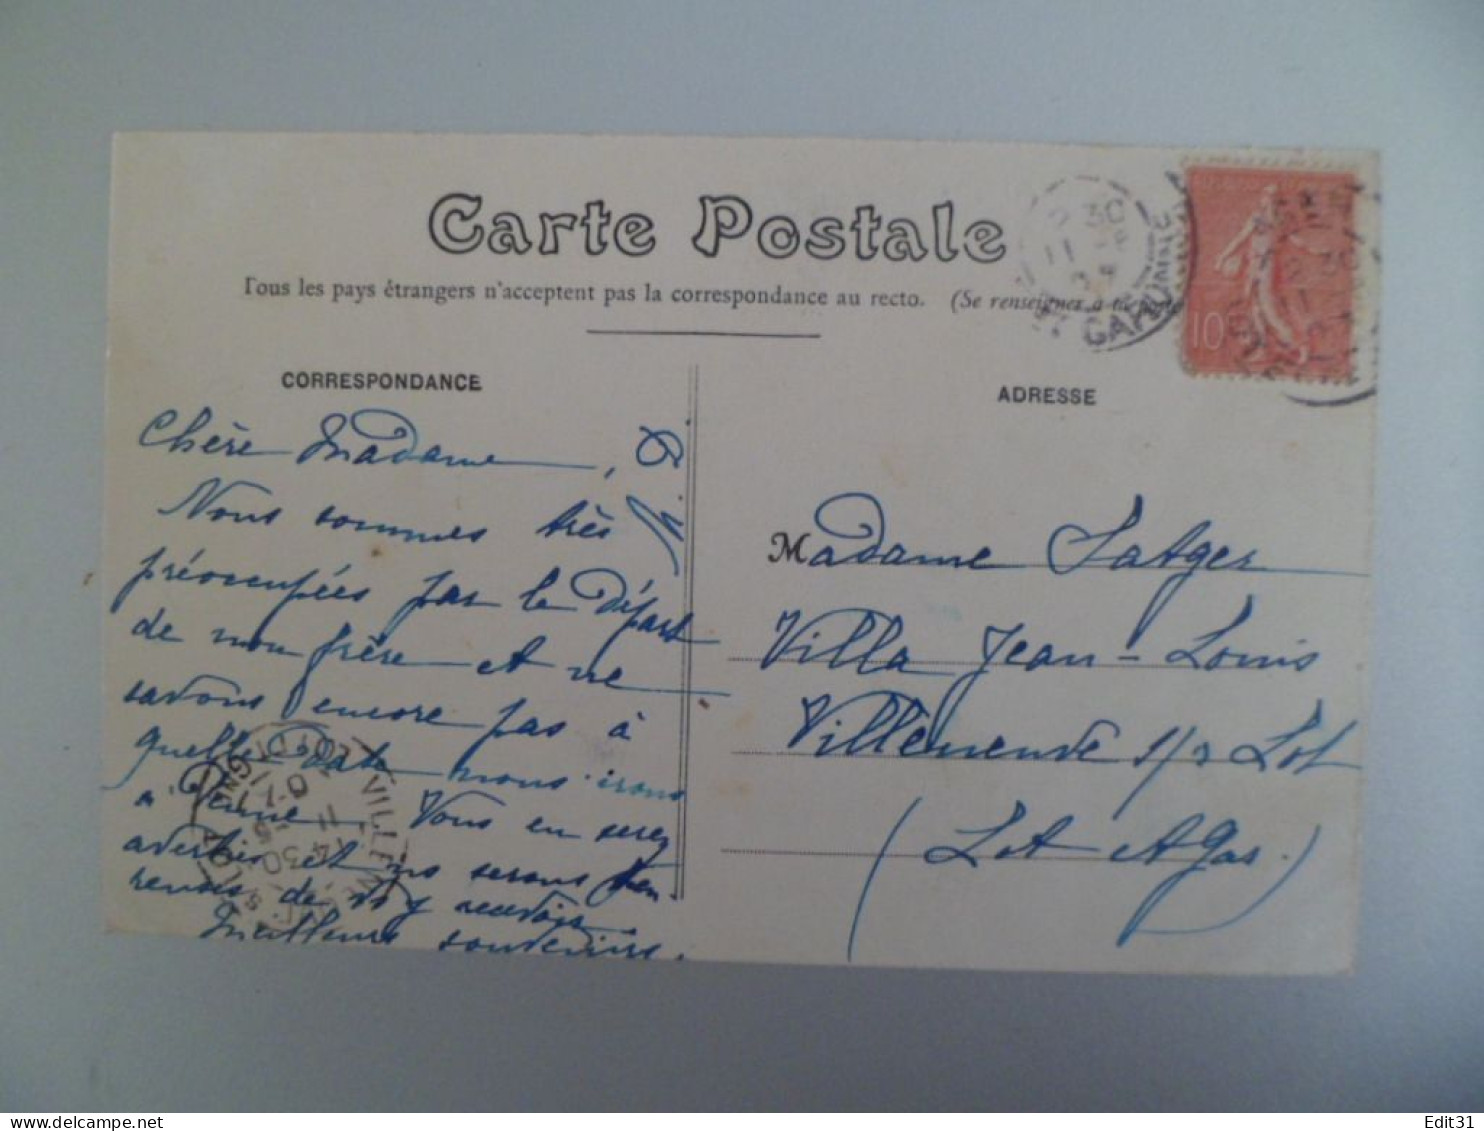 Carte Postale
Tous les pays étrangers n'acceptent pas la correspondance au recto. (Se renseigner à
CORRESPONDANCE
ADRESSE
Chère Madame,
Nous sommes très
préoccupées par le départ
de mon frère et ne
savons encore pas à
quelle date nous irons
à Penne. Vous en serez
avertie et ns serons heu-
reuses de vs y recevoir.
Meilleurs souvenirs.
Madame Satger
Villa Jean-Louis
Villeneuve s/r Lot
(Lot et Gar.)
AGEN
GARONNE
2 30
11
10
VILLENEUVE
LOT
14 30
11
Edit31